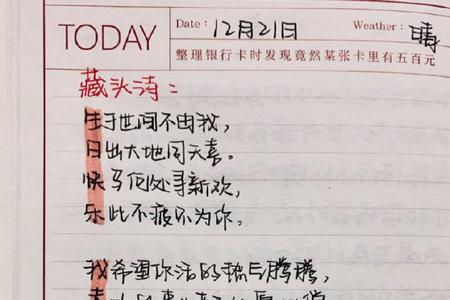 TODAY
Date: 12月21日 Weather: 晴
整理银行卡时发现竟然某张卡里有五百元
藏头诗:
生于世间不由我,
日出大地同天喜。
快马何处寻新欢,
乐此不疲只为你。
我希望你活的热气腾腾,